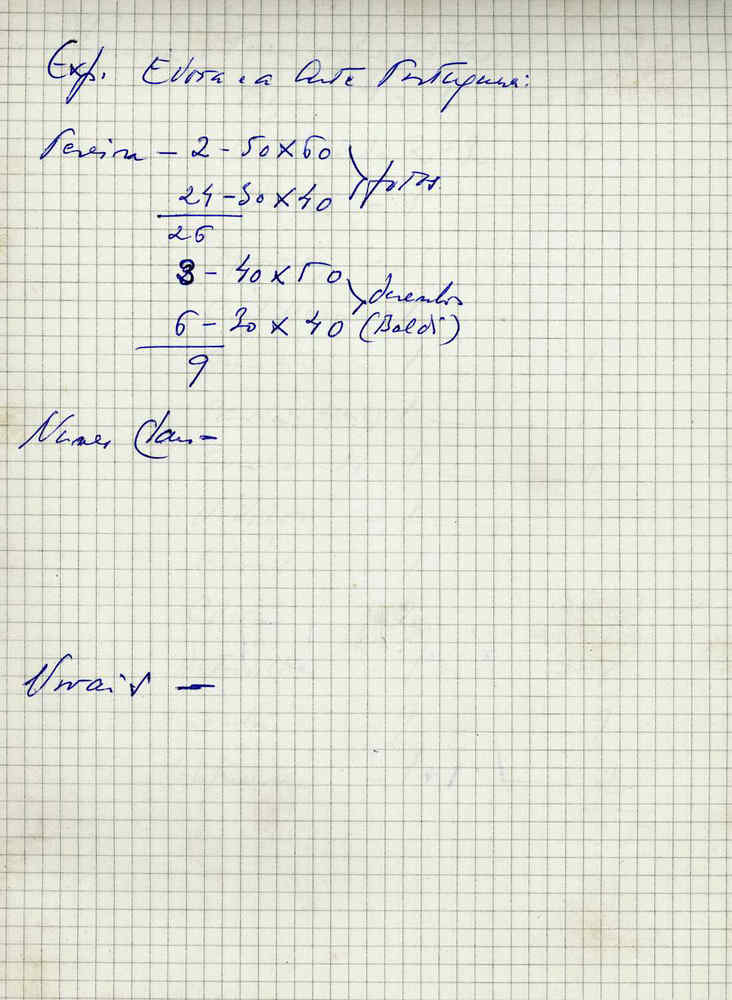 Exp. Evora e a Arte Portuguesa:
Pereira - 2 - 50 x 60
24 - 30 x 40
fotos
26
3 - 40 x 50
desenhos
6 - 30 x 40 (Baldi)
9
Nunes Claro -